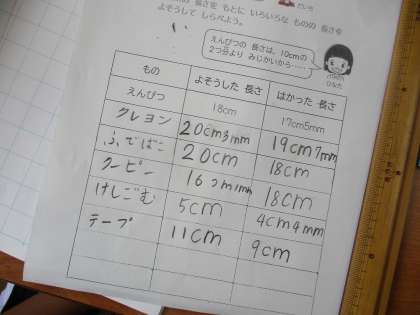 長さを もとに いろいろな ものの 長さを
よそうして しらべよう。
えんぴつの 長さは、10cmの
2つ分より みじかいから……
ひなた
もの よそうした 長さ はかった 長さ
えんぴつ 18cm 17cm5mm
クレヨン 20cm3mm 19cm7mm
ふでばこ 20cm 18cm
クーピー 18cm
けしごむ 5cm 4cm4mm
テープ 11cm 9cm